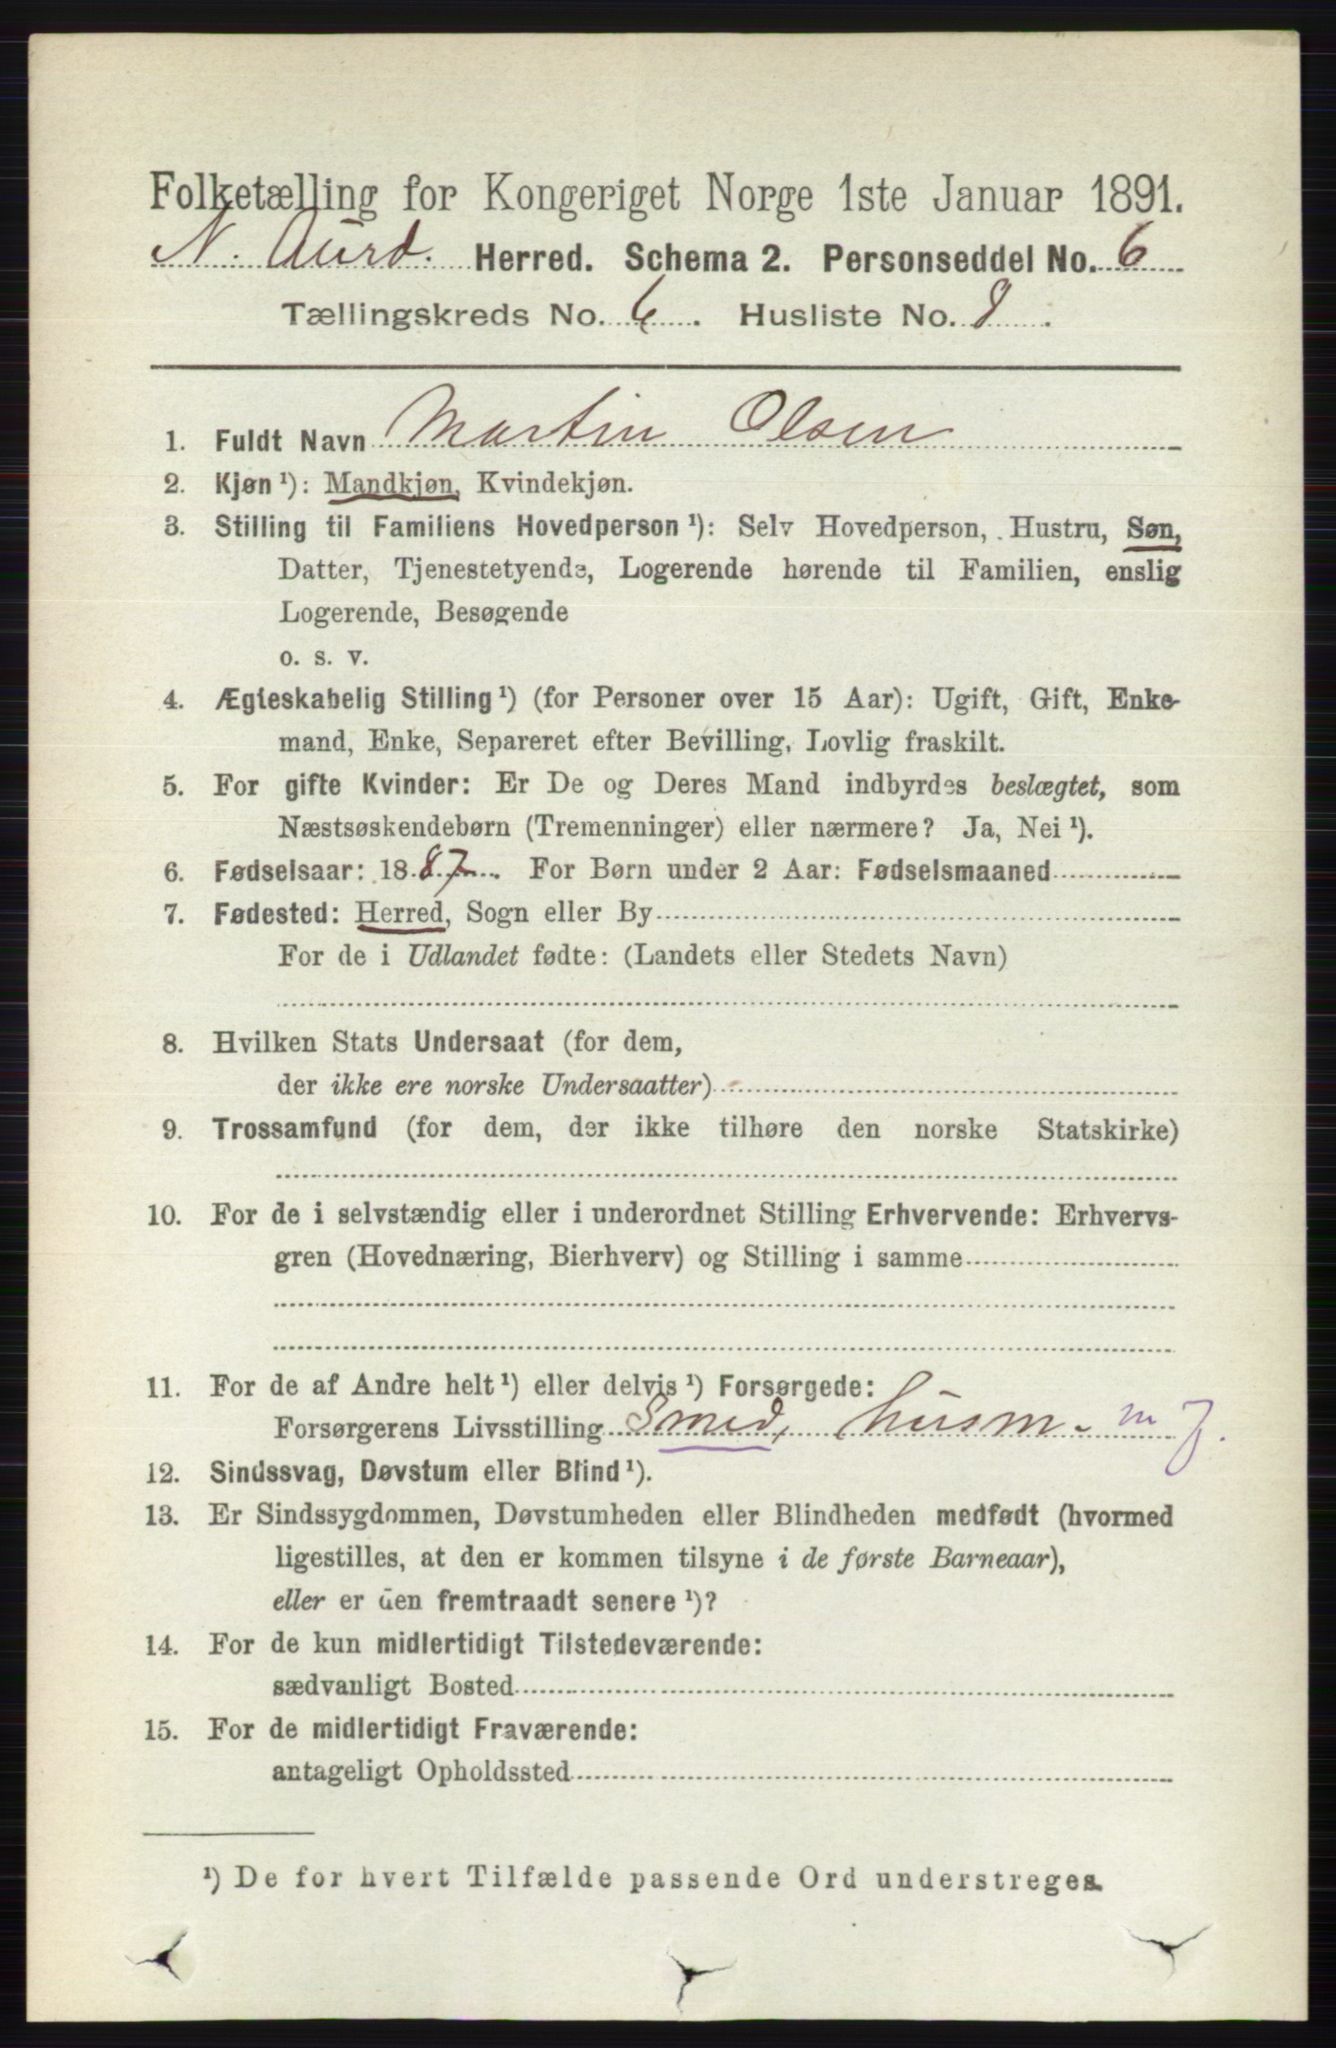 Folketælling for Kongeriget Norge 1ste Januar 1891.
N. Aurd. Herred. Schema 2. Personseddel No. 6
Tællingskreds No. 6. Husliste No. 8.
1. Fuldt Navn Martin Olsen
2. Kjøn ¹): Mandkjøn, Kvindekjøn.
3. Stilling til Familiens Hovedperson ¹): Selv Hovedperson, Hustru, Søn,
Datter, Tjenestetyende, Logerende hørende til Familien, enslig
Logerende, Besøgende
o. s. v.
4. Ægteskabelig Stilling ¹) (for Personer over 15 Aar): Ugift, Gift, Enke-
mand, Enke, Separeret efter Bevilling, Lovlig fraskilt.
5. For gifte Kvinder: Er De og Deres Mand indbyrdes beslægtet, som
Næstsøskendebørn (Tremenninger) eller nærmere? Ja, Nei ¹).
6. Fødselsaar: 1887. For Børn under 2 Aar: Fødselsmaaned
7. Fødested: Herred, Sogn eller By
For de i Udlandet fødte: (Landets eller Stedets Navn)
8. Hvilken Stats Undersaat (for dem,
der ikke ere norske Undersaatter)
9. Trossamfund (for dem, der ikke tilhøre den norske Statskirke)
10. For de i selvstændig eller i underordnet Stilling Erhvervende: Erhvervs-
gren (Hovednæring, Bierhverv) og Stilling i samme
11. For de af Andre helt ¹) eller delvis ¹) Forsørgede:
Forsørgerens Livsstilling Smed, husm. m J.
12. Sindssvag, Døvstum eller Blind ¹).
13. Er Sindssygdommen, Døvstumheden eller Blindheden medfødt (hvormed
ligestilles, at den er kommen tilsyne i de første Barneaar),
eller er den fremtraadt senere ¹)?
14. For de kun midlertidigt Tilstedeværende:
sædvanligt Bosted
15. For de midlertidigt Fraværende:
antageligt Opholdssted
¹) De for hvert Tilfælde passende Ord understreges.